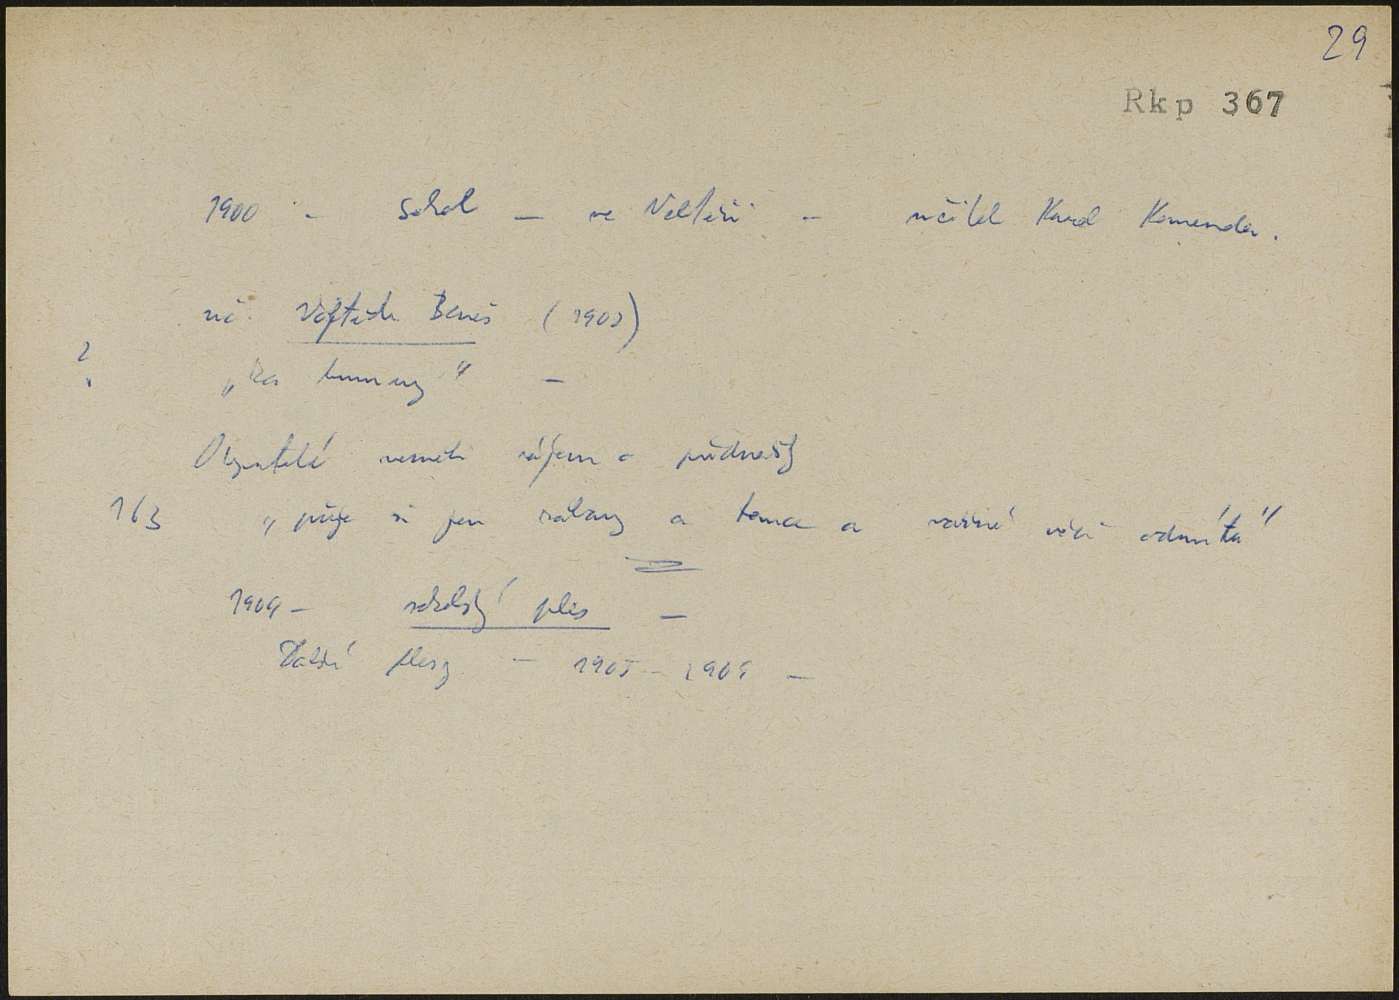 29
Rkp 367
1900 - Sokol - ve Veltěži - učitel Karel Komenda.
uč. Vojtěch Beneš (1902)
?
„Za humny" -
Obyvatelé neměli zájem o přednášky
163 „přeje si jen zábavy a tance a vážné věci odmítá"
1904 - sokolský ples -
Další plesy - 1905 - 1909 -